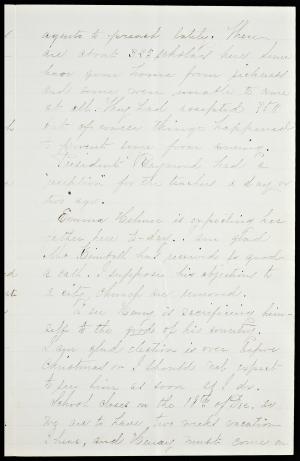 agents to preach lately. There
are about 332 scholars here. Some
have gone home from sickness
and some were unable to come
at all. They had accepted 350
out of course things happened
to prevent some from coming.
President Raymond had a
"reception" for the teachers a day or
two ago.
Emma Hubner is expecting her
father here to-day. I am glad
Mr. Kendall has received so good
a call. I suppose his objections to
a city church are removed.
I see Henry is sacrificing him-
self to the good of his country.
I am glad election is over before
Christmas or I should not expect
to see him as soon as I do.
School closes on the 18th of Dec. so
we are to have two weeks vacation
I hear, and Henry must come on